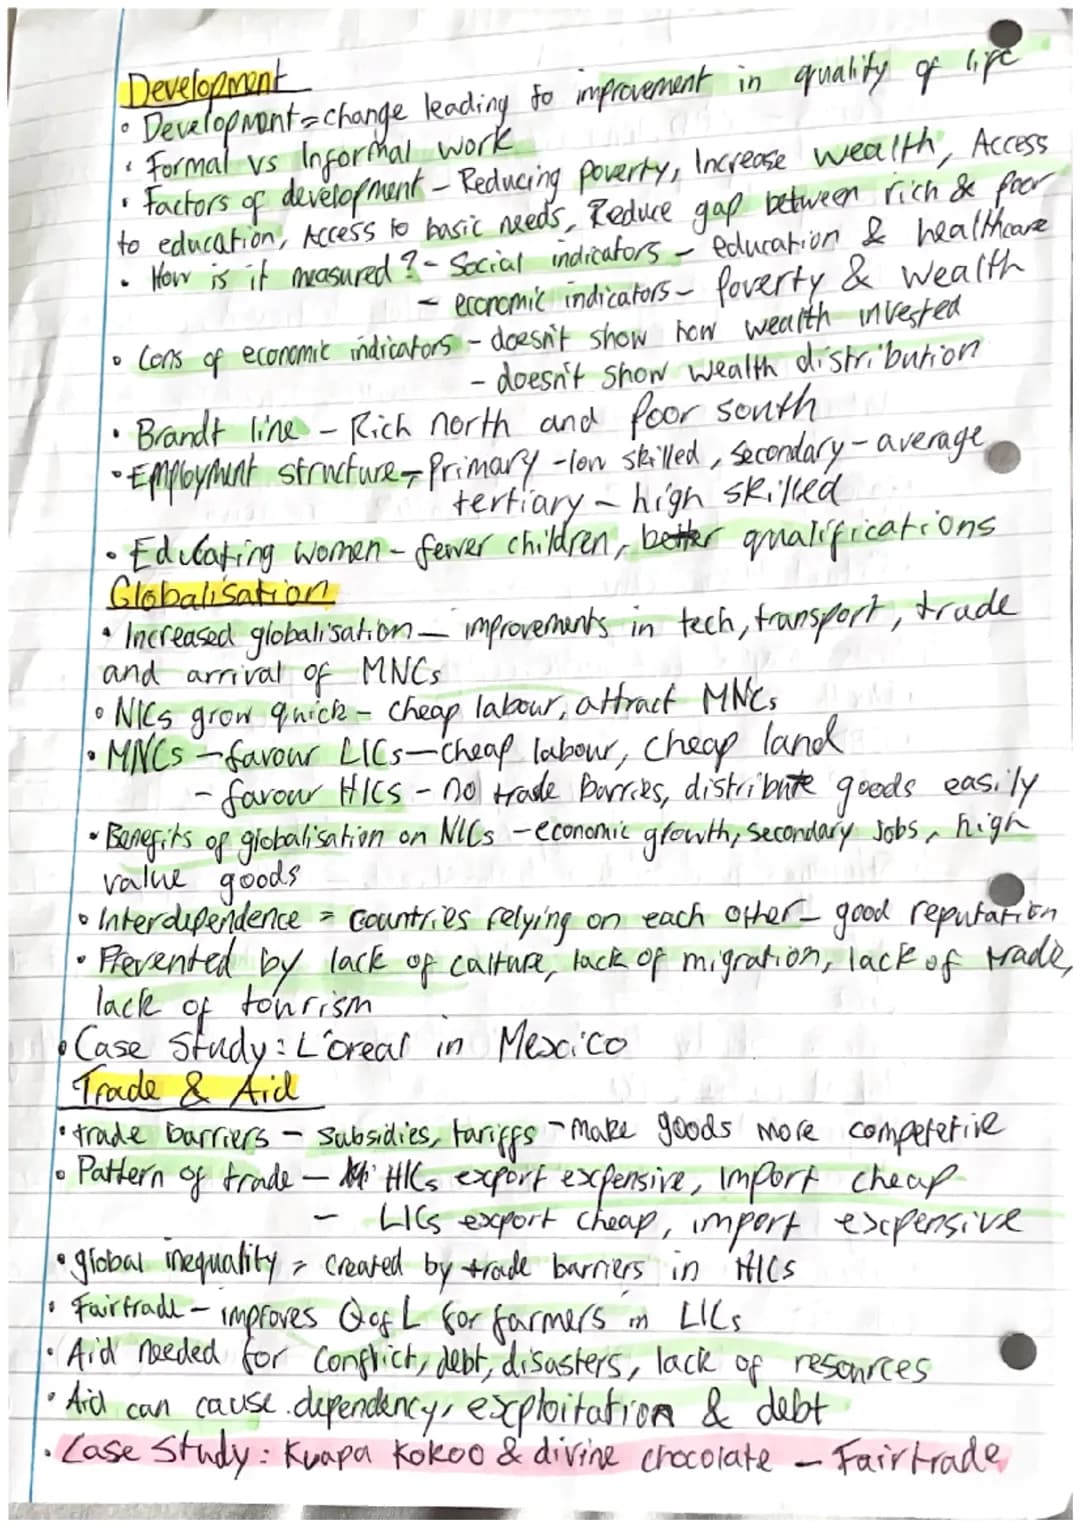 Development
• Development = change leading to improvement in quality of life
• Formal vs Informal work
• Factors of development - Reducing poverty, Increase wealth, Access
to education, Access to basic needs, Reduce gap between rich & poor
• How is it measured? - Social indicators - education & healthcare
- economic indicators - Poverty & Wealth
• Cons of economic indicators - doesn't show how wealth invested
- doesn't show wealth distribution
• Brandt line - Rich north and Poor south
• Employment structure - Primary - low skilled, secondary - average
tertiary - high skilled
• Educating women - fewer children, better qualifications
Globalisation
• Increased globalisation - improvements in tech, transport, trade
and arrival of MNCs
• NICs grow quick - cheap labour, attract MNCs
• MNCs - favour LICs - cheap labour, cheap land
- favour HICs - no trade barries, distribute goods easily
• Benefits of globalisation on NICs - economic growth, secondary jobs, high
value goods
• Interdependence = countries relying on each other - good reputation
• Prevented by lack of culture, lack of migration, lack of trade,
lack of tourism
• Case Study: L'oreal in Mexico
Trade & Aid
• trade barriers - subsidies, tariffs - make goods more competetive
• Pattern of trade - HICs export expensive, import cheap
- LICs export cheap, import expensive
• global inequality = created by trade barriers in HICs
• Fairtrade - improves Q of L for farmers in LICs
• Aid needed for conflict, debt, disasters, lack of resources
• Aid can cause dependency, exploitation & debt
• Case Study: Kuapa Kokoo & divine chocolate - Fairtrade